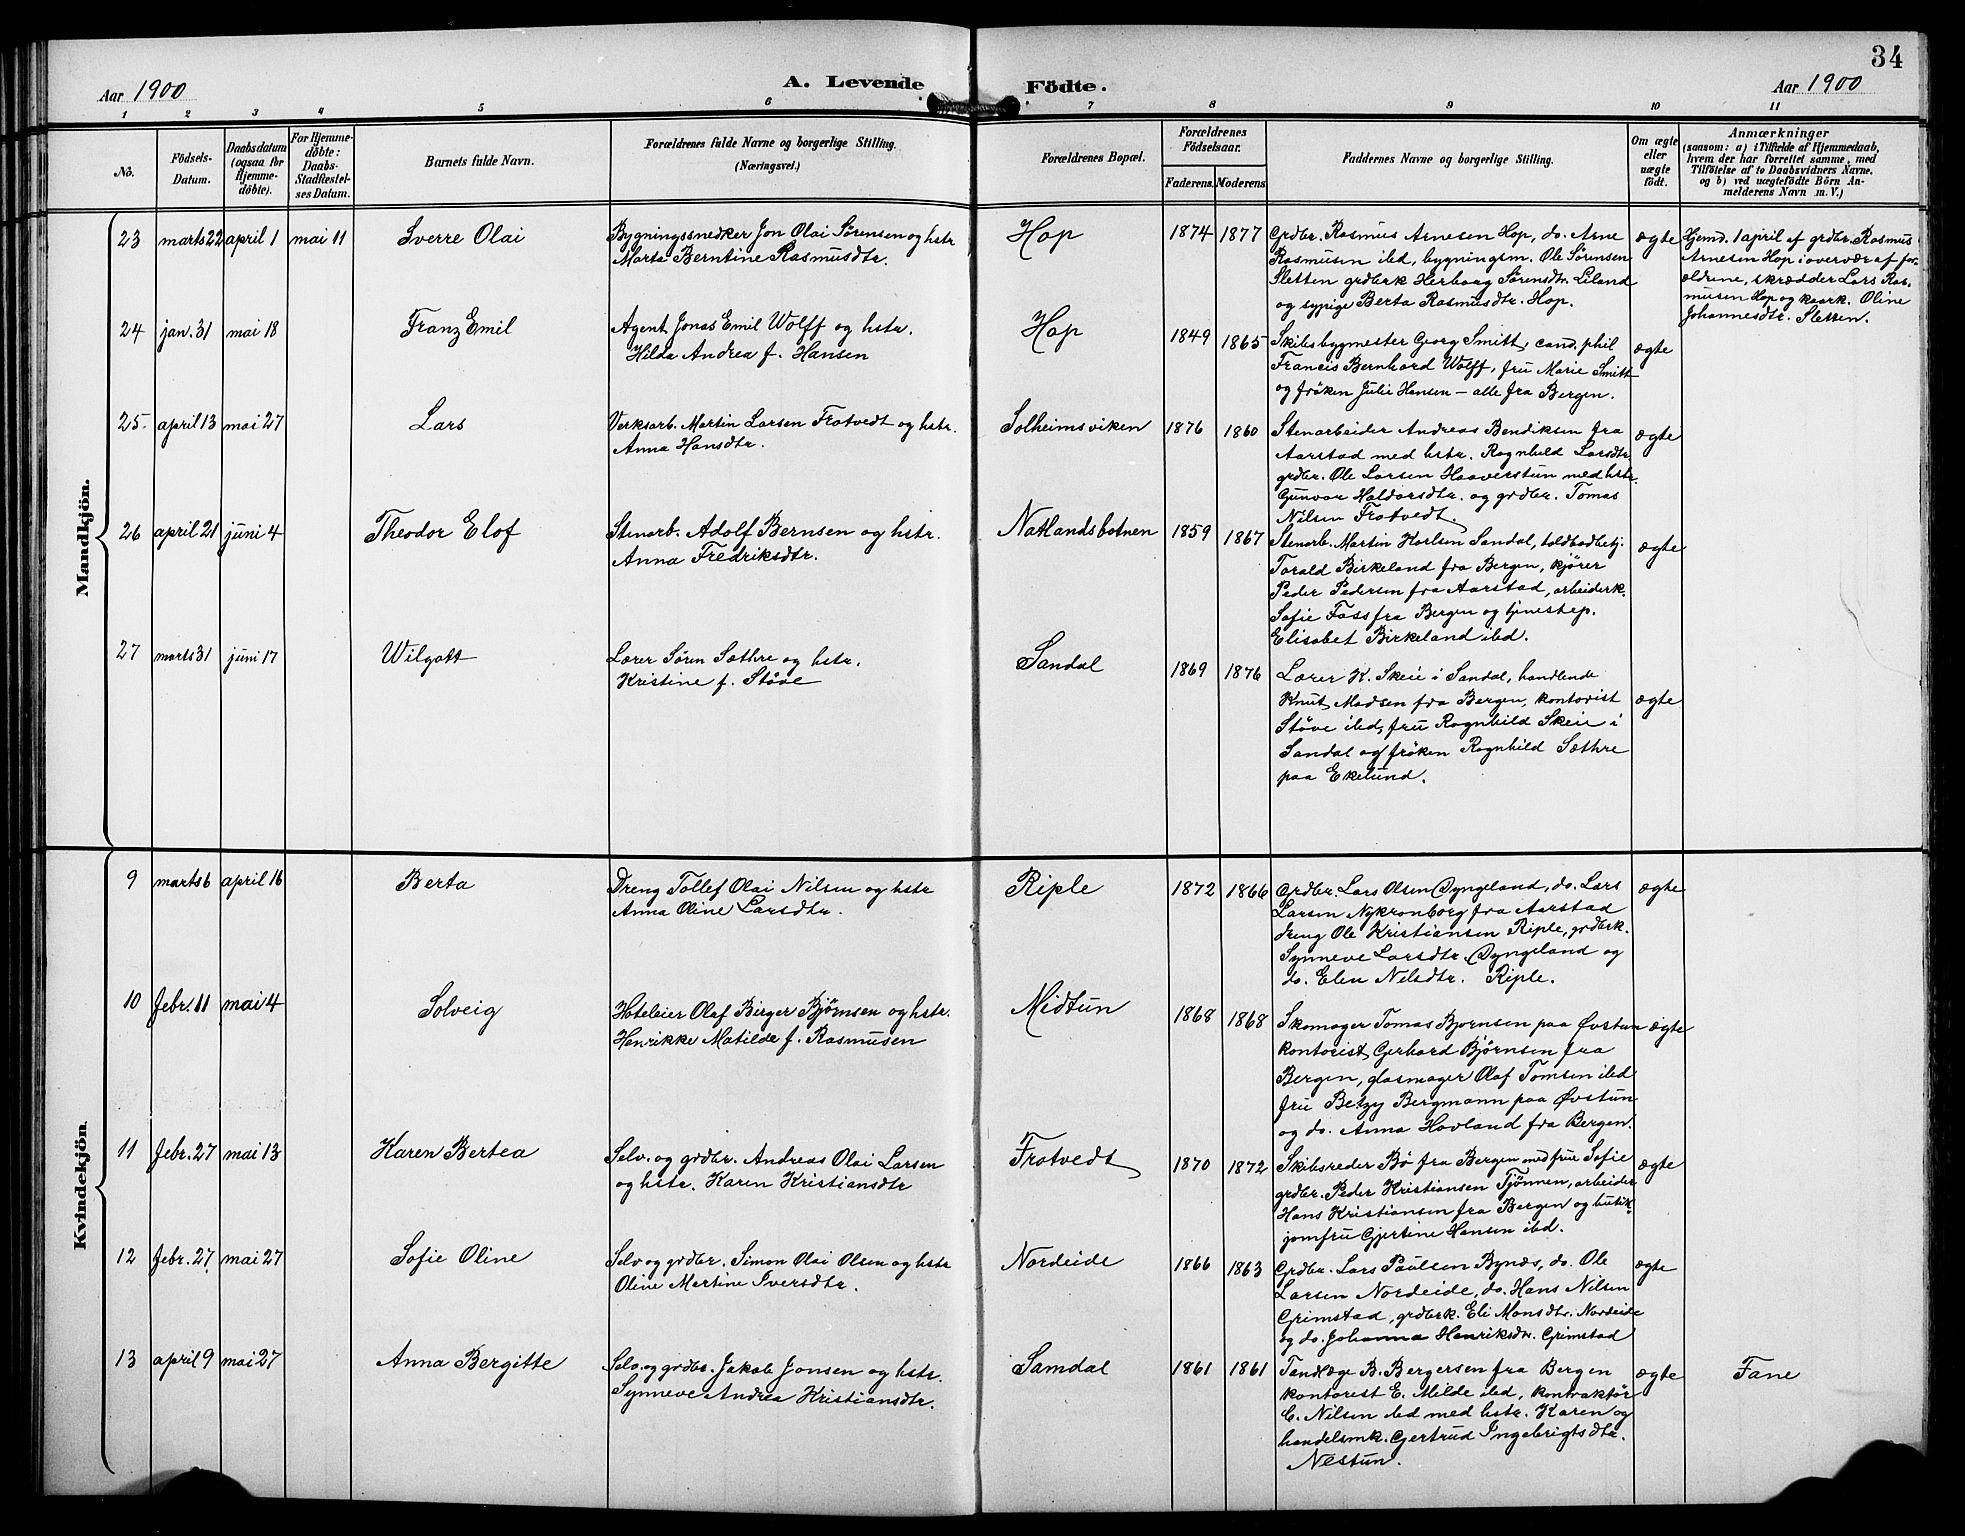 34
Aar 1900
A. Levende
Födte.
Aar 1900
1 2 3 4 5 6 7 8 9 10 11
No.
Födsels-
Datum.
Daabsdatum
(ogsaa for
Hjemme-
döbte).
For Hjemme-
döbte:
Daabs-
Stadfæstel-
ses Datum.
Barnets fulde Navn.
Forældrenes fulde Navne og borgerlige Stilling.
(Næringsvei.)
Forældrenes Bopæl.
Forældrenes
Födselsaar.
Faderens. Moderens
Faddernes Navne og borgerlige Stilling.
Om ægte
eller
uægte
födt.
Anmærkninger
(saasom: a) i Tilfælde af Hjemmedaab,
hvem der har forrettet samme, med
Tilföielse af to Daabsvidners Navne.
og b) ved uægtefödte Börn An-
melderens Navn m. V.)
Mandkjön.
23 marts 22 april 1 mai 11 Sverre Olai
Bygningssnedker Jon Olai Sørensen og hstr
Marta Berntine Rasmusdtr.
Hop 1874 1877
Grdbr. Rasmus Arnesen Hop, do. Arne
Rasmusen ibd, bygningsm. Ole Sørensen
Sletten grdbrk Herborg Sørensdtr. Liland
og sypige Berta Rasmusdtr. Hop.
ægte
Hjemd. 1 april af grdbr. Rasmus
Arnesen Hop i overvær af for-
ældrene, skrædder Lars Ras-
musen Hop og kaark. Oline
Johannesdtr. Sletten.
24 jan. 31 mai 18 Franz Emil
Agent Jonas Emil Wolff og hstr.
Hilda Andrea f. Hansen
Hop 1849 1865
Skibsbygmester Georg Smitt, cand. phil
Francis Bernhard Wolff, fru Marie Smitt
og frøken Julie Hansen – alle fra Bergen.
ægte
25 april 13 mai 27 Lars
Verksarb. Martin Larsen Frotvedt og hstr.
Anna Hansdtr.
Solheimsviken 1876 1860
Stenarbeider Andreas Bendiksen fra
Aarstad med hstr. Ragnhild Larsdtr
grdbr. Ole Larsen Haaverstun med hstr.
Gunvor Haldorsdtr. og grdbr. Tomas
Nilsen Frotvedt.
ægte
26 april 21 juni 4 Theodor Elof
Stenarb. Adolf Bernsen og hstr.
Anna Fredriksdtr.
Natlandsbotnen 1859 1867
Stenarb. Martin Karlsen Sandal, toldbodbetj.
Torald Birkeland fra Bergen, kjører
Peder Pedersen fra Aarstad, arbeiderk.
Sofie Foss fra Bergen og tjenestep.
Elisabet Birkeland ibd.
ægte
27 marts 31 juni 17 Wilgott
Lærer Søren Sæthre og hstr.
Kristine f. Støve
Sandal 1869 1876
Lærer K. Skeie i Sandal, handlende
Knut Madsen fra Bergen, kontorist
Støve ibd, fru Ragnhild Skeie i
Sandal og frøken Ragnhild Sæthre
paa Ekelund.
ægte
Kvindekjön.
9 marts 6 april 16 Berta
Dreng Tollef Olai Nilsen og hstr
Anna Oline Larsdtr.
Riple 1872 1866
Grdbr. Lars Olsen Dyngeland, do. Lars
Larsen Nykronborg fra Aarstad
dreng Ole Kristiansen Riple, grdbrk.
Synneve Larsdtr. Dyngeland og
do. Elen Nilsdtr. Riple.
ægte
10 febr. 11 mai 4 Solveig
Hoteleier Olaf Birger Bjørnsen og hstr.
Henrikke Matilde f. Rasmusen
Midtun 1868 1868
Skomager Tomas Bjørnsen paa Øvstun
kontorist Gerhard Bjørnsen fra
Bergen, glasmager Olaf Tomsen ibd
fru Betzy Bergmann paa Øvstun
og do. Anna Hovland fra Bergen.
ægte
11 febr. 27 mai 13 Karen Bertea
Selv. og grdbr. Andreas Olai Larsen
og hstr. Karen Kristiansdtr
Frotvedt 1870 1872
Skibsreder Bø fra Bergen med frue Sofie
grdbr. Peder Kristiansen Tjønnen, arbeider
Hans Kristiansen fra Bergen og butik-
jomfru Gjertine Hansen ibd.
ægte
12 febr. 27 mai 27 Sofie Oline
Selv og grdbr. Simon Olai Olsen og hstr
Oline Martine Iversdtr.
Nordeide 1866 1863
Grdbr. Lars Paulsen Bynes, do. Ole
Larsen Nordeide, do. Hans Nilsen
Grimstad, grdbrk. Eli Monsdtr. Nordeide
og do. Johanna Henriksdtr. Grimstad
ægte
13 april 9 mai 27 Anna Bergitte
Selv. og grdbr. Jakob Jonsen og hstr.
Synneve Andrea Kristiansdtr.
Samdal 1861 1861
Tandlæge B. Bergersen fra Bergen
kontorist E. Milde ibd, kontraktør
C. Nilsen ibd med hstr. Karen og
handelsmk. Gjertrud Ingebrigtsdtr.
Nestun.
ægte
Fane